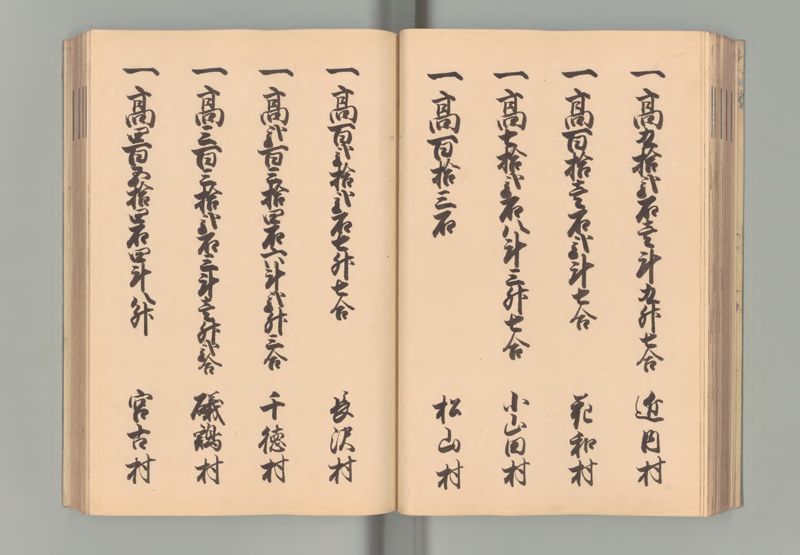 一高五拾弐石壱斗九升七合 近内村
一高百拾壱石弐斗七合 花和村
一高七拾弐石八斗三升七合 小山田村
一高百拾三石 松山村
一高百弐拾弐石七升七合 長沢村
一高弐百三拾四石六斗弐升三合 千徳村
一高三百三拾弐石三斗壱升弐合 磯鶏村
一高四百五拾四石四斗八升 宮古村